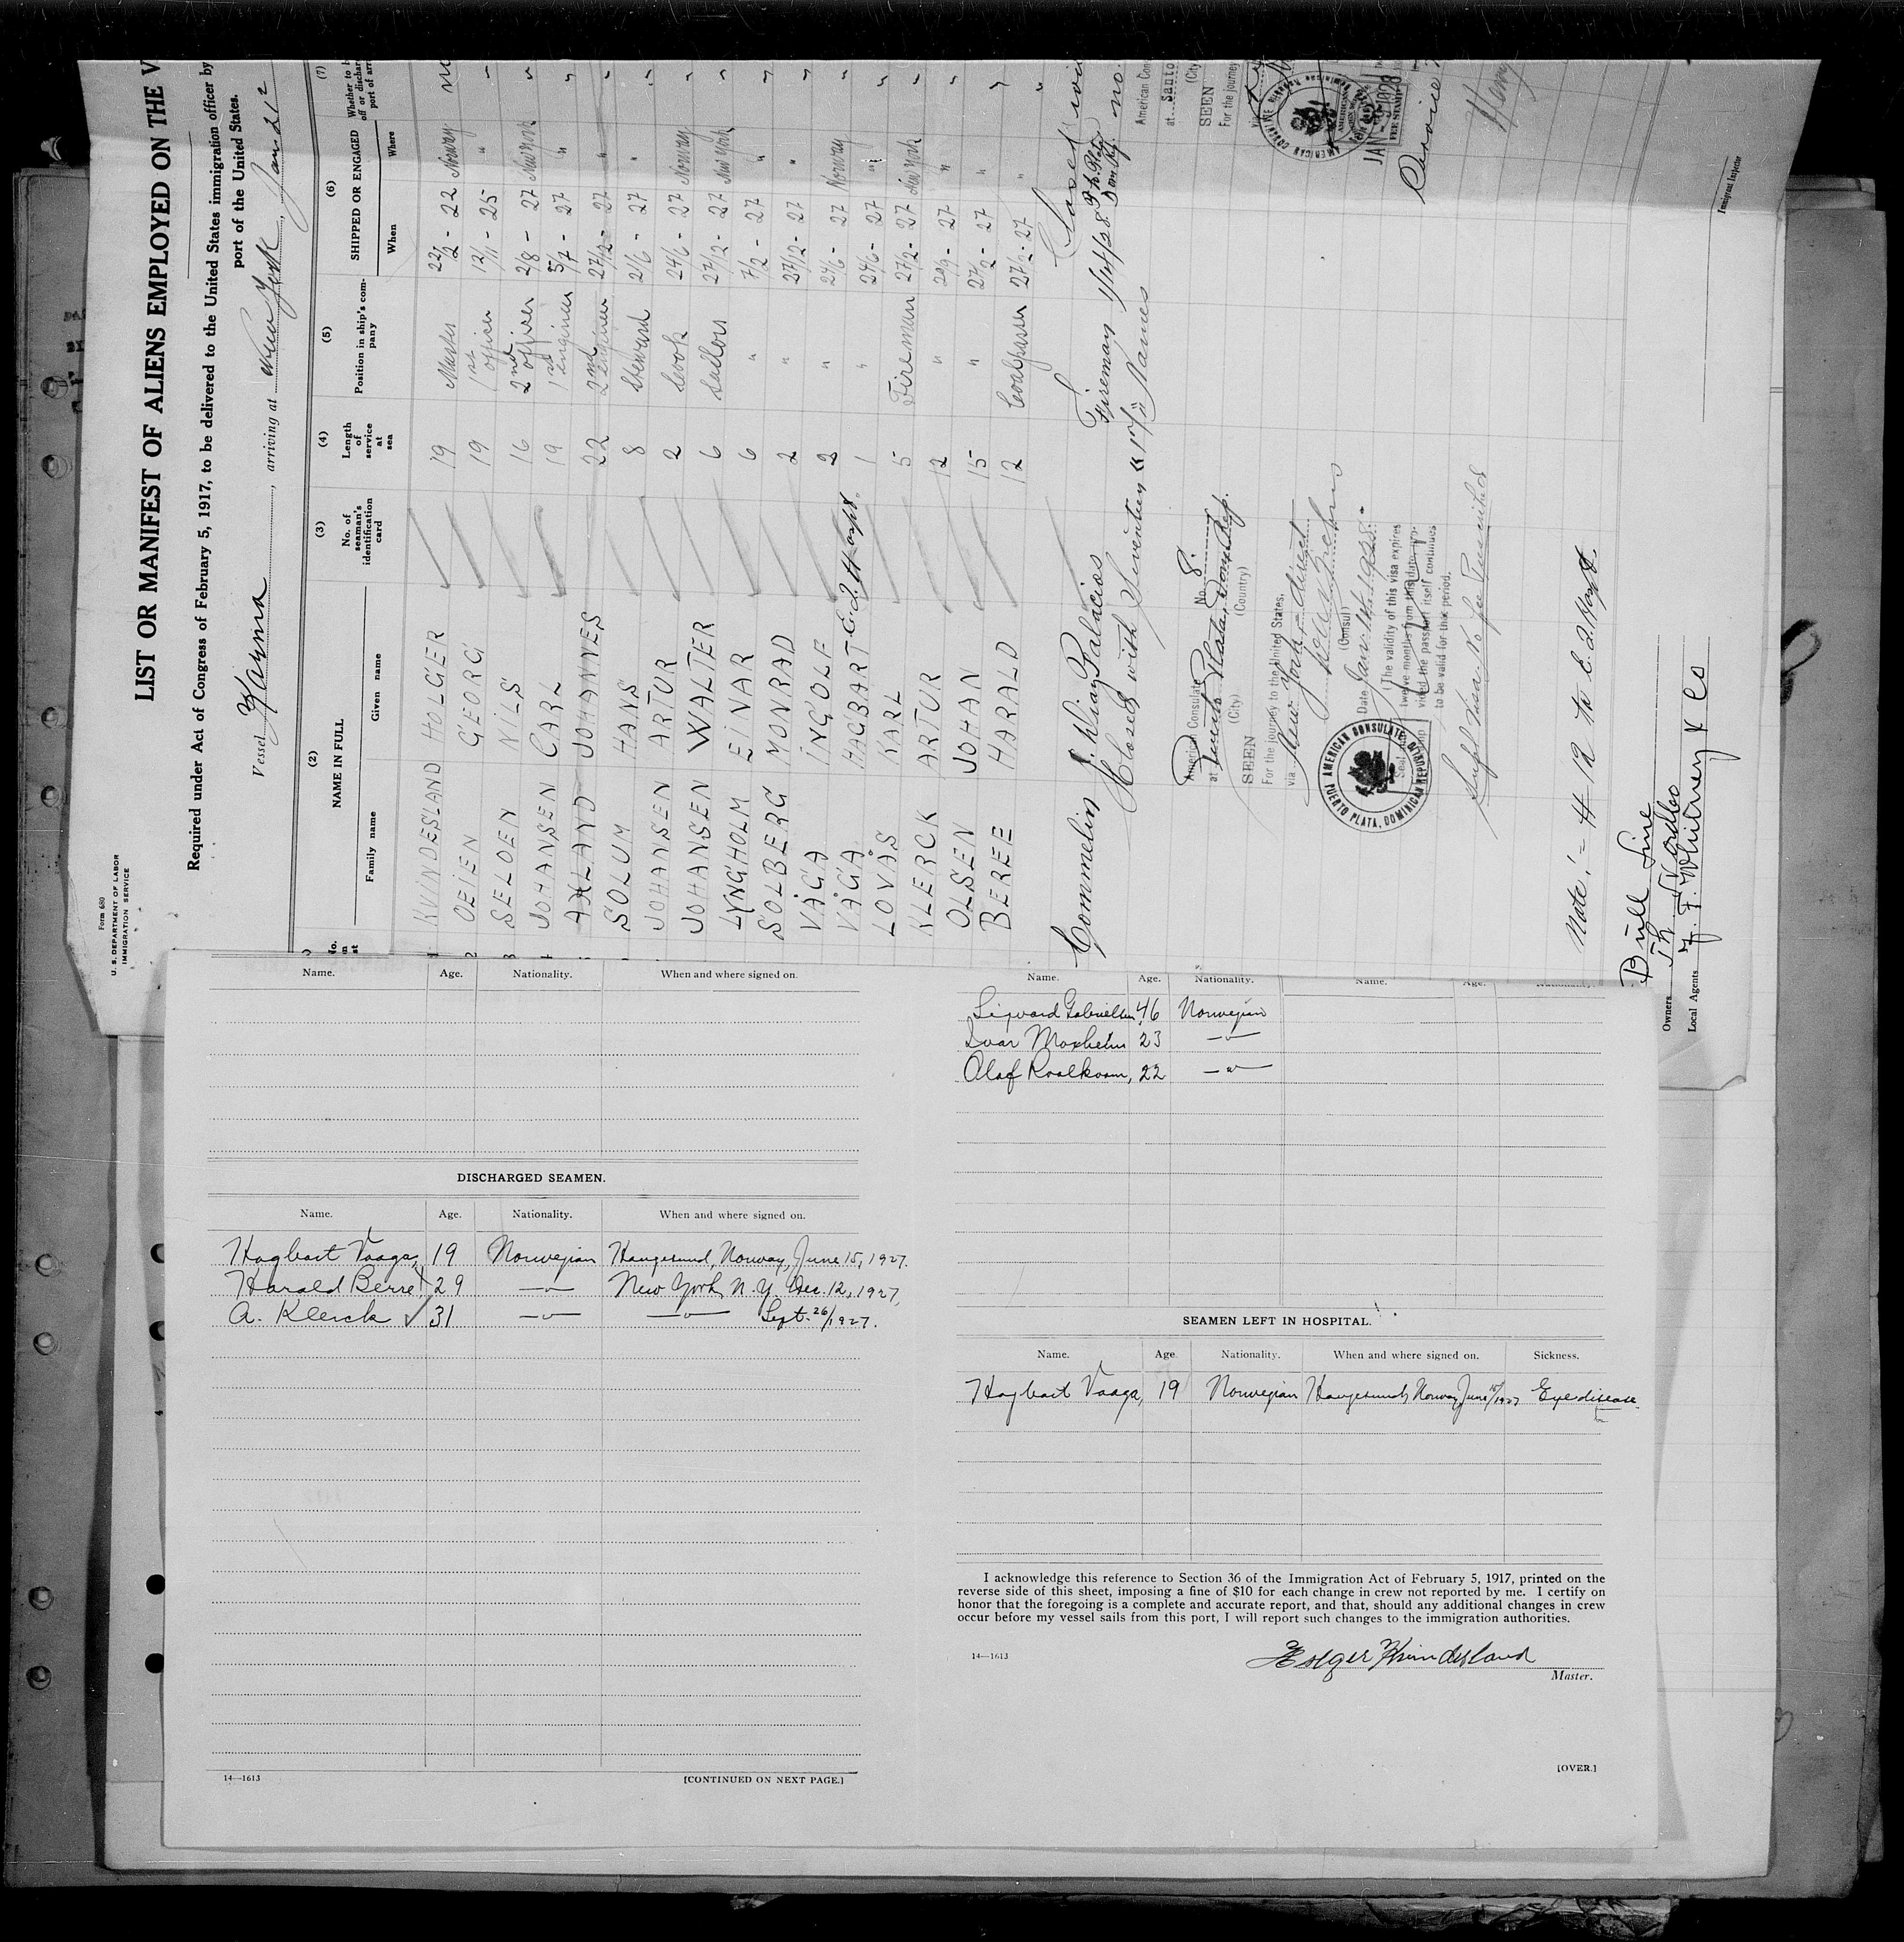 Form 680
U. S. DEPARTMENT OF LABOR
IMMIGRATION SERVICE
LIST OR MANIFEST OF ALIENS EMPLOYED ON THE V
Required under Act of Congress of February 5, 1917, to be delivered to the United States immigration officer by
port of the United States.
Vessel Karma, arriving at New York, Jan 21
(2) (3) (4) (5) (6) (7)
NAME IN FULL
Family name Given name
No. of seaman's identification card
Length of service at sea
Position in ship's company
SHIPPED OR ENGAGED
When Where
KVINDESLAND HOLGER 19 Master 22/2 - 22 Norway
OEIEN GEORG 19 1st officer 12/11 - 25 "
SELOEN NILS 16 2nd officer 2/8 - 27 New York
JOHANSEN CARL 19 1st engineer 5/7 - 27 "
AKLAND JOHANNES 22 2nd engineer 27/12 - 27 "
SOLUM HANS 8 Steward 21/6 - 27 "
JOHANSEN ARTUR 2 Cook 24/6 - 27 Norway
JOHANSEN WALTER 6 Sailors 27/12 - 27 New York
LYNGHOLM EINAR 6 " 7/2 - 27 "
SOLBERG MONRAD 2 " 27/12 - 27 "
VÅGA INGOLF 2 " 24/6 - 27 Norway
VÅGA HAGBART - E. I. Hospt. 1 " 24/6 - 27 "
LOVÅS KARL 5 Fireman 27/2 - 27 New York
KLERCK ARTUR 12 " 20/9 - 27 "
OLSEN JOHAN 15 " 27/2 - 27 "
BEREE HARALD 12 Coalpasser 27/2 - 27 "
Commelin J. Diaz Palacios Fireman 1/14/28 Pto Plata Dom Rep. no.
Closed with Seventeen "17" Names
American Consulate No. 8.
at Puerto Plata, Dom. Rep.
(City) (Country)
SEEN
For the journey to the United States,
via New York - direct
(Consul)
Date Jan 14th 1928.
(The validity of this visa expires
twelve months from this date provided the passport itself continues
to be valid for this period.
AMERICAN CONSULATE
PUERTO PLATA, DOMINICAN REPUBLIC
American Con
at Santo
(City
SEEN
For the journey
via
AMERICAN
FEE STAMP
Service
Note: - # 12 to E. I. Hospt.
Owners Bull Line
Local Agents J. F. Whitney & Co
Immigrant Inspector
Name. Age. Nationality. When and where signed on.
DISCHARGED SEAMEN.
Name. Age. Nationality. When and where signed on.
Hagbart Vaaga, 19 Norwegian Haugesund, Norway, June 15, 1927.
Harald Berre 29 —"— New York, N. Y. Dec. 12, 1927,
A. Klerck ✓ 31 —"— —"— Sept. 26/1927.
14—1613
[CONTINUED ON NEXT PAGE.]
Name. Age. Nationality. Name. Age. Nationality.
Sigvard Gabrielsen, 46 Norwegian
Ivar Moxheim 23 —"—
Olaf Roalkvam, 22 —"—
SEAMEN LEFT IN HOSPITAL.
Name. Age. Nationality. When and where signed on. Sickness.
Hagbart Vaaga, 19 Norwegian Haugesund, Norway June 15/1927 Eye disease
I acknowledge this reference to Section 36 of the Immigration Act of February 5, 1917, printed on the
reverse side of this sheet, imposing a fine of $10 for each change in crew not reported by me. I certify on
honor that the foregoing is a complete and accurate report, and that, should any additional changes in crew
occur before my vessel sails from this port, I will report such changes to the immigration authorities.
14—1613
Holger Kvindesland
Master.
[OVER.]